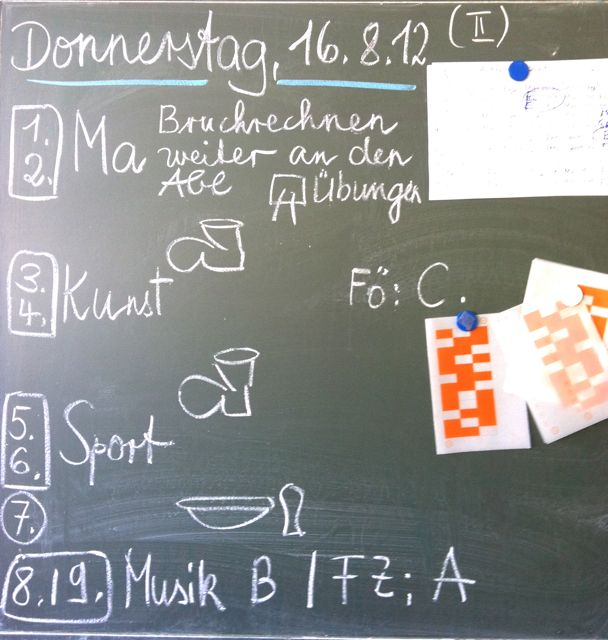 Donnerstag, 16.8.12 (II)
1.
2.
Ma
Bruchrechnen
weiter an den
ABe
A Übungen
3.
4.
Kunst
Fö: C.
5.
6.
Sport
7.
8./9. Musik B / FZ: A